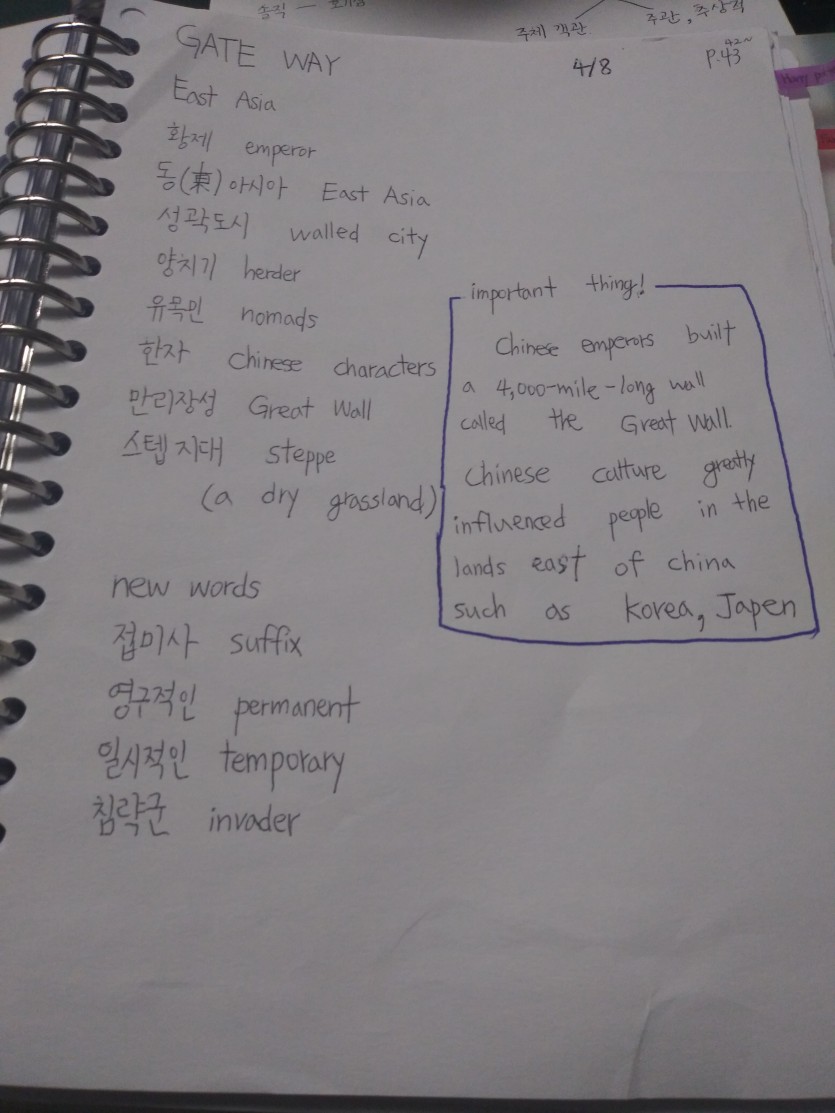 주체 객관
주관, 추상적
GATE WAY
4/8
42~
P.43
East Asia
황제 emperor
동(東)아시아 East Asia
성곽도시 walled city
양치기 herder
유목민 nomads
한자 Chinese characters
만리장성 Great Wall
스텝 지대 steppe
(a dry grassland)
important thing!
Chinese emperors built
a 4,000-mile-long wall
called the Great Wall.
Chinese culture greatly
influenced people in the
lands east of china
such as korea, Japen
new words
접미사 suffix
영구적인 permanent
일시적인 temporary
침략군 invader